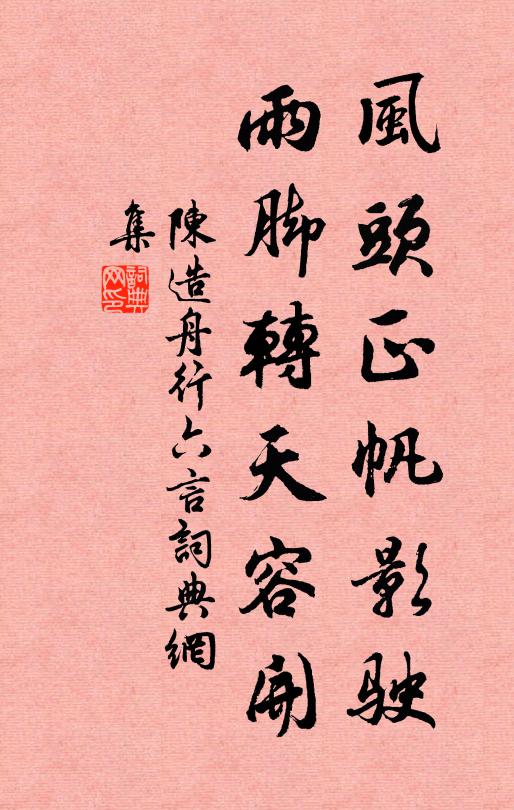 風頭正帆影駛
雨脚轉天容開
陳造舟行六言詞典網
集
詞典網印